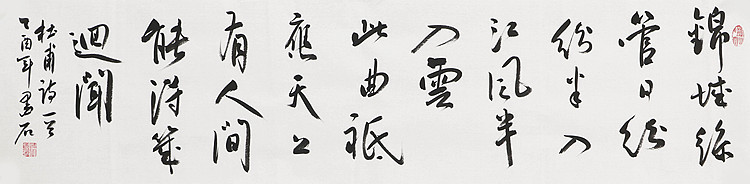 錦城絲
管日紛
紛半入
江風半
入雲
此曲祗
應天上
有人間
能得幾
迴聞
杜甫詩一首
乙酉年石